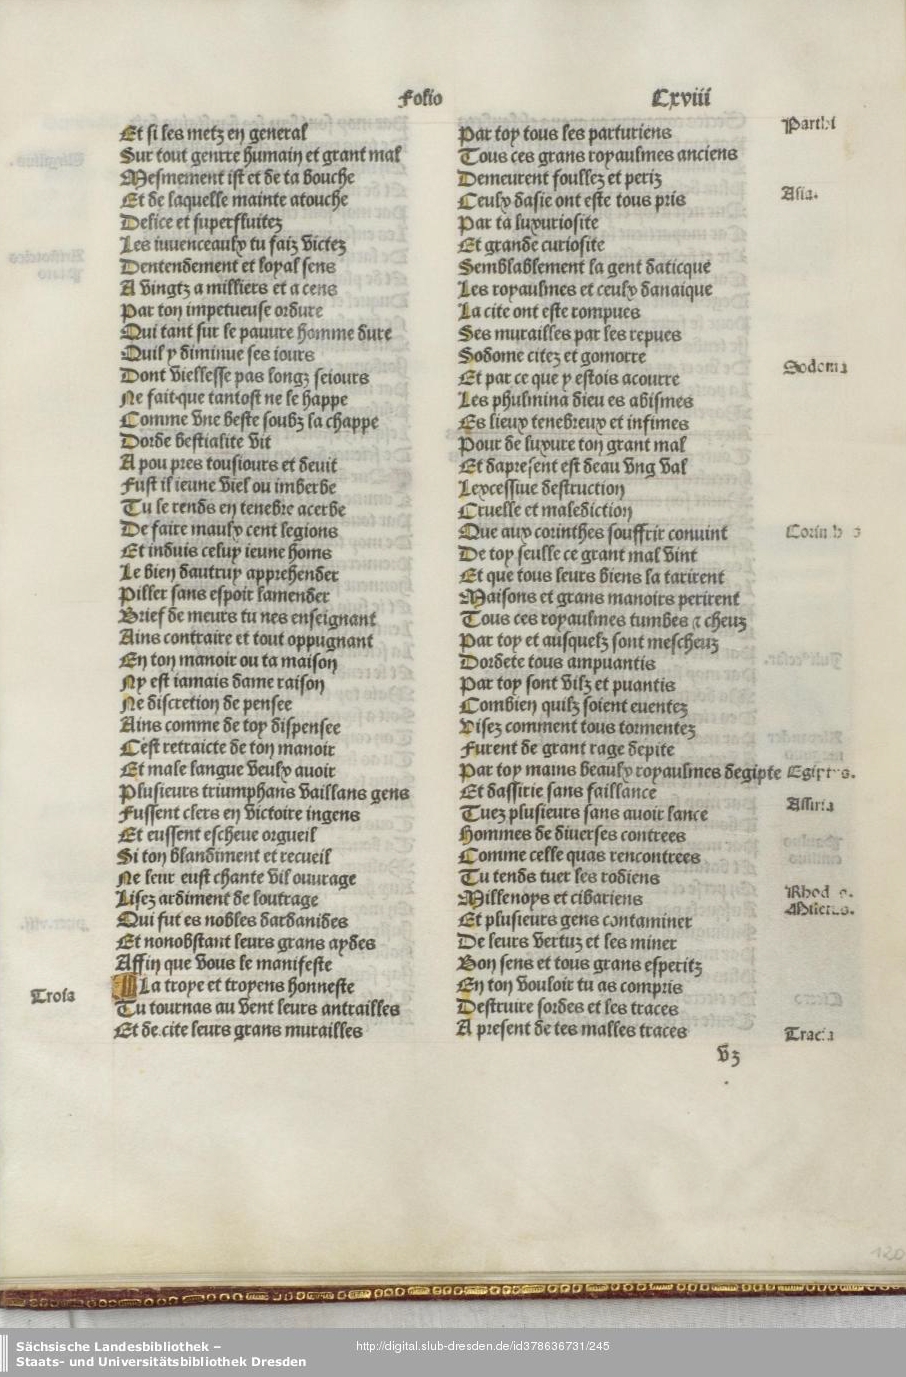 Folio Cxviii
Et si les metz en general
Sur tout genrre humain et grant mal
Mesmement ist et de ta bouche
Et de laquelle mainte atouche
Delice et superfluitez
Les iuuenceaulx tu faiz victez
Dentendement et loyal sens
A vingtz a milliers et a cens
Par ton impetueuse ordure
Qui tant sur le pauure homme dure
Quil y diminue ses iours
Dont viellesse pas longz seiours
Ne fait que tantost ne le happe
Comme vne beste soubz la chappe
Dorde bestialite vit
A pou pres tousiours et deuit
Fust il ieune viel ou imberbe
Tu le rends en tenebre acerbe
De faire maulx cent legions
Et induis celuy ieune homs
Le bien dautruy apprehender
Piller sans espoir lamender
Brief de meurs tu nes enseignant
Ains contraire et tout oppugnant
En ton manoir ou ta maison
Ny est iamais dame raison
Ne discretion de pensee
Ains comme de toy dispensee
Cest retraicte de ton manoir
Et male langue veulx auoir
Plusieurs triumphans vaillans gens
Fussent clers en victoire ingens
Et eussent escheue orgueil
Si ton blandiment et recueil
Ne leur eust chante vil ouurage
Lisez ardiment de loutrage
Qui fut es nobles dardanides
Et nonobstant leurs grans aydes
Affin que vous le manifeste
La troye et troyens honneste
Troia
Tu tournas au vent leurs antrailles
Et de cite leurs grans murailles
Par toy tous les parturiens
Parthi
Tous ces grans royaulmes anciens
Demeurent foullez et periz
Ceulx dasie ont este tous pris
Asia.
Par ta luxuriosite
Et grande curiosite
Semblablement la gent daticque
Les royaulmes et ceulx danaique
La cite ont este rompues
Ses murailles par les repues
Sodome citez et gomorre
Sodoma
Et par ce que y estois acourre
Les phulmina dieu es abismes
Es lieux tenebreux et infimes
Pour de luxure ton grant mal
Et dapresent est deau vng val
Lexcessiue destruction
Cruelle et malediction
Que aux corinthes souffrir conuint
De toy seulle ce grant mal vint
Et que tous leurs biens la tarirent
Maisons et grans manoirs perirent
Tous ces royaulmes tumbes ⁊ cheuz
Par toy et ausquelz sont mescheuz
Dordete tous ampuantis
Par toy sont vilz et puantis
Combien quilz soient euentez
Visez comment tous tormentez
Furent de grant rage depite
Par toy mains beaulx royaulmes degipte
Et dassirie sans faillance
Assiria
Tuez plusieurs sans auoir lance
Hommes de diuerses contrees
Comme celle quas rencontrees
Tu tends tuer les rodiens
Millenoys et cibariens
Et plusieurs gens contaminer
De leurs vertuz et les miner
Bon sens et tous grans esperitz
En ton vouloir tu as compris
Destruire sordes et les traces
A present de tes malles traces
Tracia
vz
120
Sächsische Landesbibliothek –
Staats- und Universitätsbibliothek Dresden
http://digital.slub-dresden.de/id378636731/245